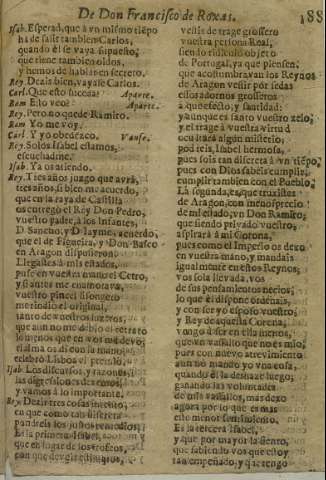 De Don Francisco de Roxas. 188
Isab. Esperad, que à un mismo tiẽpo
ha de salir tambien Carlos,
quando èl se vaya supuesto,
que tiene tambien oldos,
y hemos de hablar en secreto.
Rey. Dezis bien, vayase Carlos.
Carl. Que esto suceda! Aparte.
Ram. Esto veo? Aparte.
Rey. Pero no quede Ramiro.
Ram Yo me voy.
Carl. Y yo obedezco. Vanse.
Rey. Solos Isabel estamos,
escuchadme.
Isab. Ya os atiendo.
Rey. Tres años juzgo que avrà,
tres años, si bien me acuerdo,
que en la raya de Castilla
os entregò el Rey Don Pedro,
vuestro padre, à los Infantes,
D. Sancho, y D. Jayme, acuerdo,
que el de Figueira, y Don Basco
en Aragon dispusieron.
Llegastes à mis estados,
puse en vuestra mano el Cetro,
y si antes me enamorava,
vuestro pincel lisongero
me rindiò el original,
tanto de vuestros luzeros,
que aun no me debiò el retrato
lo menos que en vos me devo;
el alma os dì con la mano,
celebrò Lisboa el
Isab. Los discursos, y razones,
las digressiones dexemos,
y vamos à lo importante.
Rey. Deziros tres cosas intento,
en que como tan discreta
pondreis los justos remedios;
Es la primera Isabel,
que en lugar de los trofeos,
con que devo
vestir de trage grossero
vuestra persona Real,
siendo ridiculo objeto
de Portugal, ya que piensen,
que acostumbravan los Reynos
de Aragon vestir por sedas
essos adornos groseros
à que efecto, y santidad:
y aunque es santo vuestro zelo;
y el trage à vuestra virtud
ocultarà algun misterio,
podreis, Isabel hermosa,
pues sois tan discreta à un tiẽpo,
pues con Dios sabeis cumplir,
cumplir tambien con el Pueblo.
La segunda, es, que truxistes
de Aragon, con menosprecio
de mi estado, un Don Ramiro;
que siendo privado vuestro,
aspirarà à mi Corona,
pues como el Imperio dexo
en vuestra mano, y mandais
igualmente en estos Reynos;
vos sola llevada, vos
de sus pensamientos necios,
lo que èl dispone ordenais,
y con ser yo esposo vuestro,
y Rey de aquesta Corona,
vengo à ser en ella menos,
que un vassallo que no es mio,
pues con nuevo atrevimiento
aun no mando yo una cosa,
quando èl la deshaze luego;
ganando las voluntades
de mis vassallos, mas dexo
agora por lo que es mas
este menor sentimiento.
Es la tercera Isabel,
y que por mayor la siento,
que sabiendo vos que estoy
tan empeñado, y que tengo